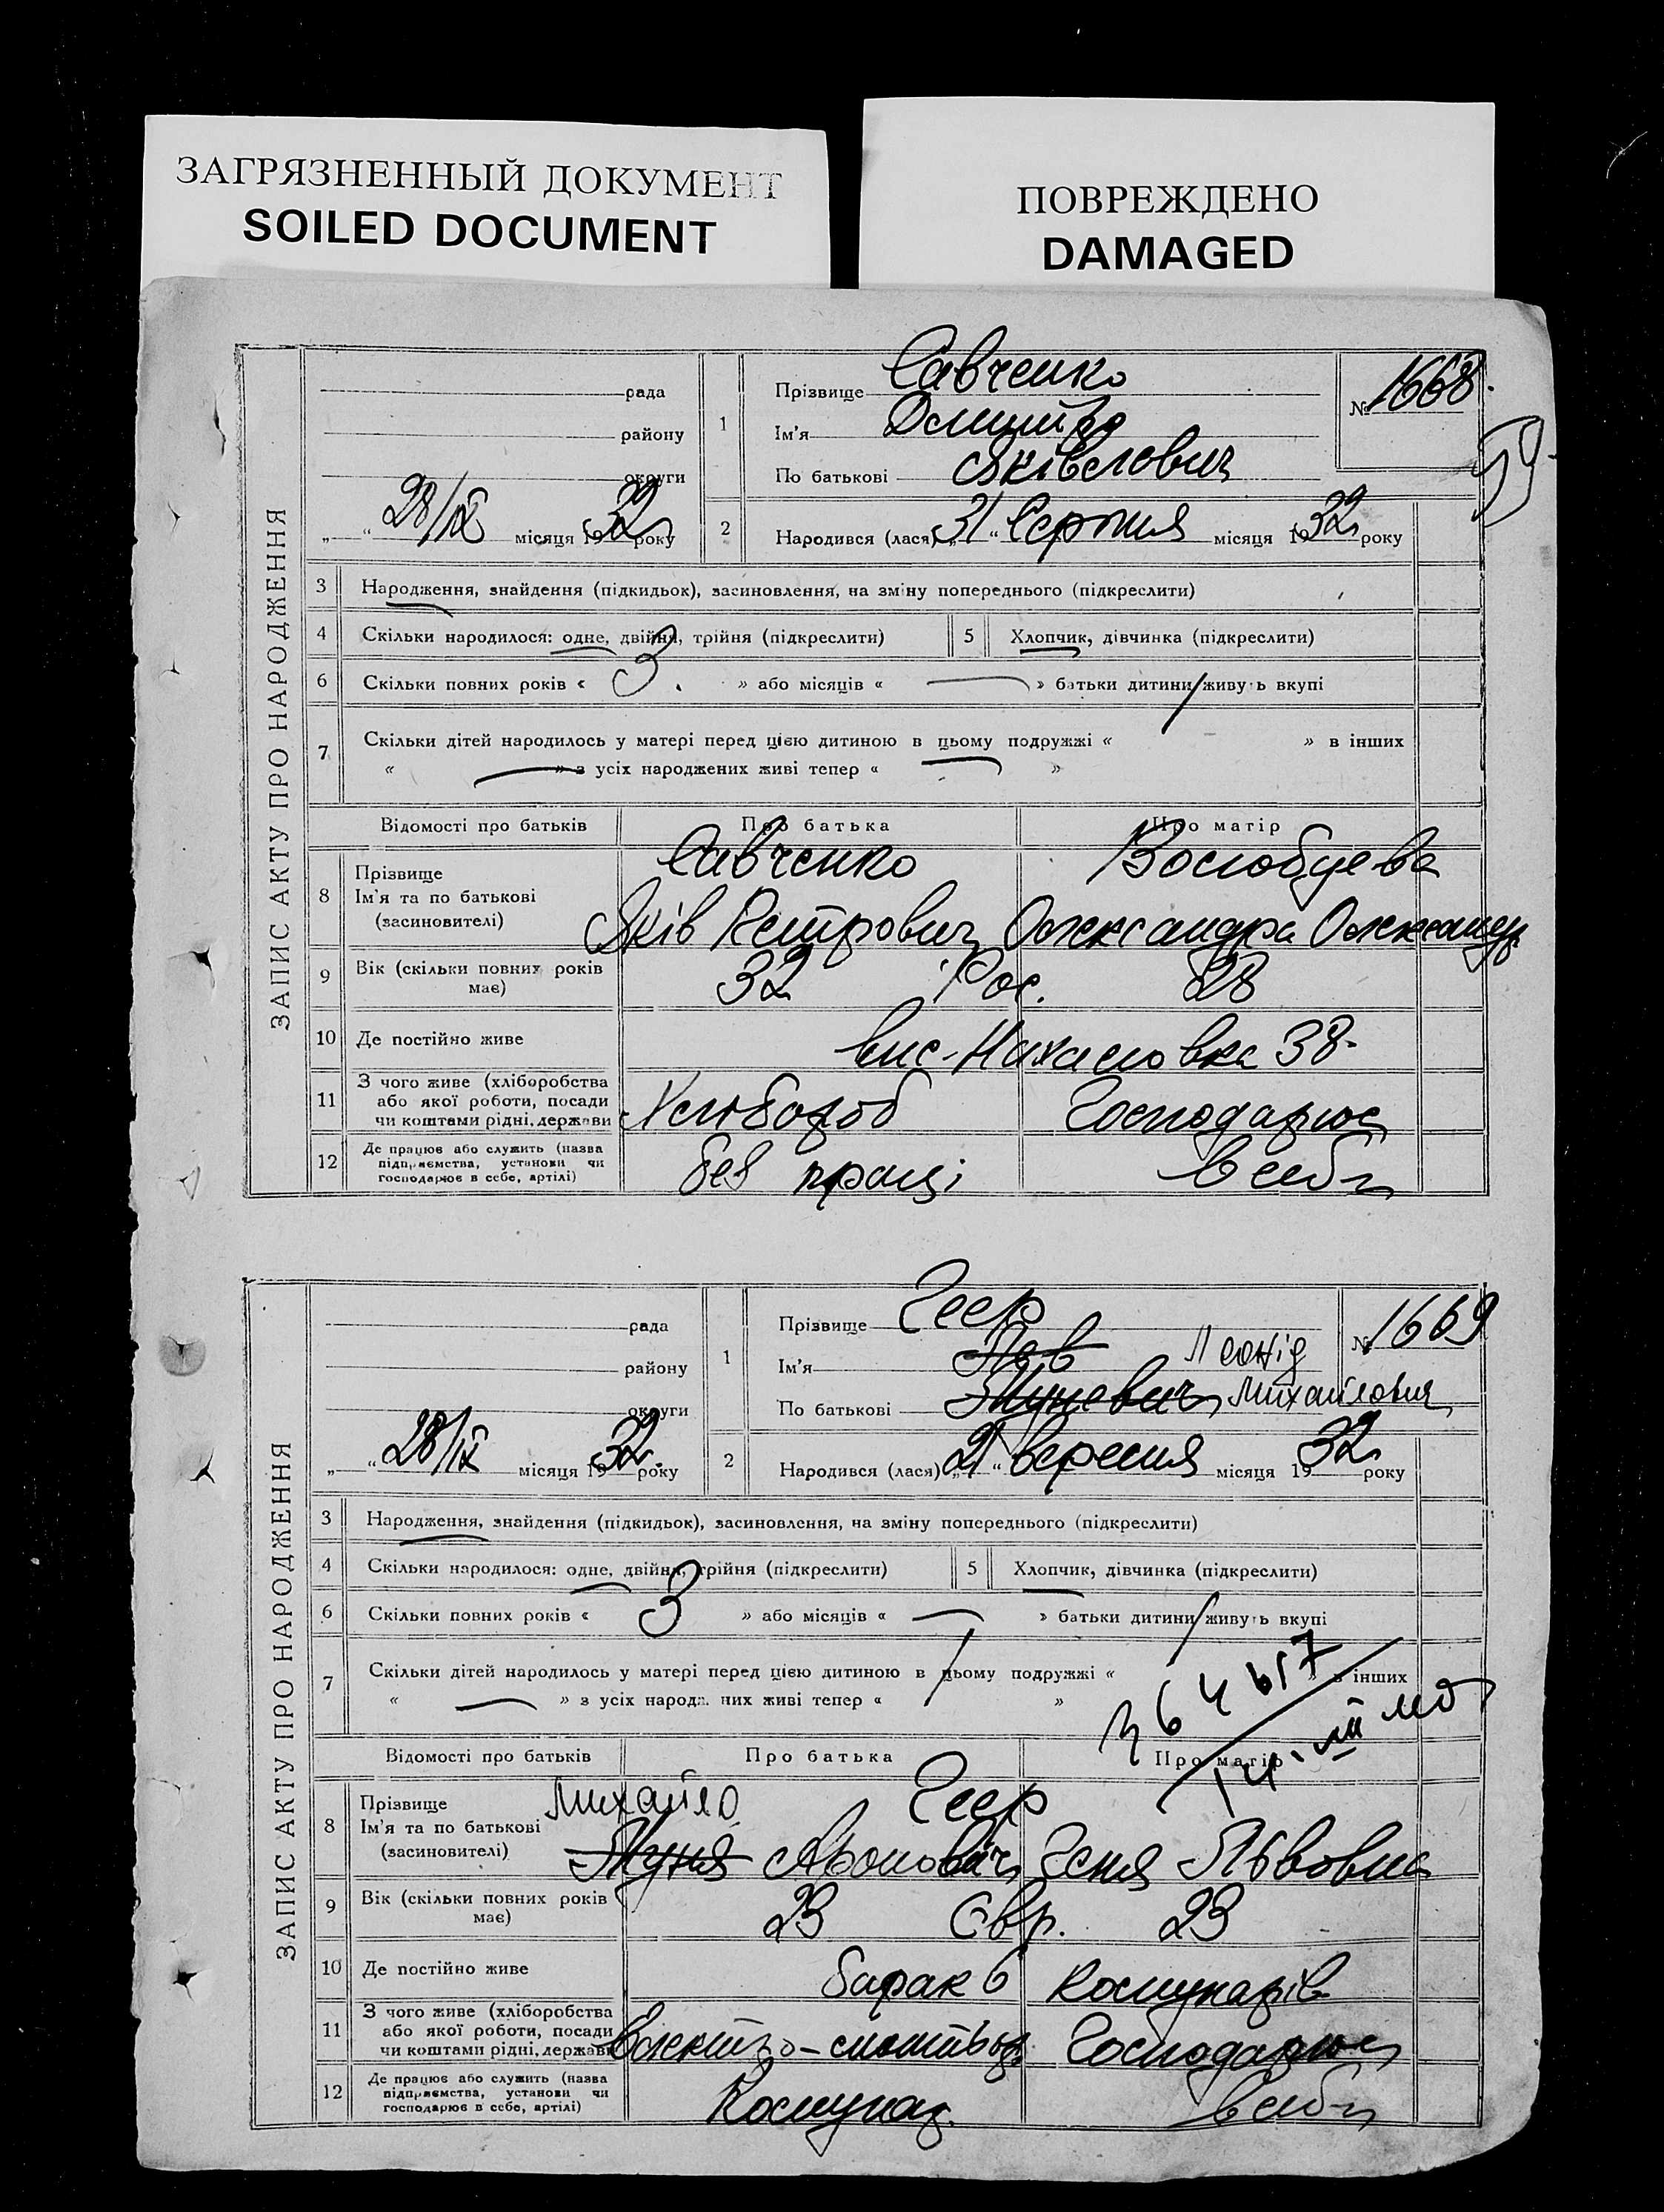 ЗАГРЯЗНЕННЫЙ ДОКУМЕНТ
SOILED DOCUMENT
ПОВРЕЖДЕНО
DAMAGED
ЗАПИС АКТУ ПРО НАРОДЖЕННЯ
рада
району
округи
„ “ 28/IX місяця 1932 року
1
Прізвище Савченко
Ім'я Дмитро
По батькові Яківлович
№ 1668
59
2
Народився (лася) „31“ Серпня місяця 1932 року
3 Народження, знайдення (підкидьок), засиновлення, на зміну попереднього (підкреслити)
4 Скільки народилося: одне, двійня, трійня (підкреслити) 5 Хлопчик, дівчинка (підкреслити)
6 Скільки повних років « 3. » або місяців « — » батьки дитини живуть вкупі
7 Скільки дітей народилось у матері перед цією дитиною в цьому подружжі « » в інших
« — » з усіх народжених живі тепер « »
Відомості про батьків Про батька Про матір
8 Прізвище
Ім'я та по батькові
(засиновителі)
Савченко
Яків Петрович
Волобуева
Олександра Олександр
9 Вік (скільки повних років має) 32 Рос. 28
10 Де постійно живе вис-Нахаловка 38
11 З чого живе (хліборобства
або якої роботи, посади
чи коштами рідні, держави
Хлібороб Господарює
12 Де працює або служить (назва
підприємства, установи чи
господарює в себе, артілі)
без праці в себе
ЗАПИС АКТУ ПРО НАРОДЖЕННЯ
рада
району
округи
„ “ 28/IX місяця 1932 року
1
Прізвище Геер
Ім'я Лев Леонід
По батькові Муневич Михайлович
№ 1669
2
Народився (лася) „21“ вересня місяця 1932 року
3 Народження, знайдення (підкидьок), засиновлення, на зміну попереднього (підкреслити)
4 Скільки народилося: одне, двійня, трійня (підкреслити) 5 Хлопчик, дівчинка (підкреслити)
6 Скільки повних років « 3 » або місяців « — » батьки дитини живуть вкупі
7 Скільки дітей народилось у матері перед цією дитиною в цьому подружжі « » в інших
« — » з усіх народж. них живі тепер « »
Відомості про батьків Про батька Про матір
8 Прізвище
Ім'я та по батькові
(засиновителі)
Михайло Геер
Муня Аронович Геня Львовна
9 Вік (скільки повних років має) 23 Євр. 23
10 Де постійно живе барак 6 Комунарів
11 З чого живе (хліборобства
або якої роботи, посади
чи коштами рідні, держави
Електро- Господарює
12 Де працює або служить (назва
підприємства, установи чи
господарює в себе, артілі)
Комунар. в себе